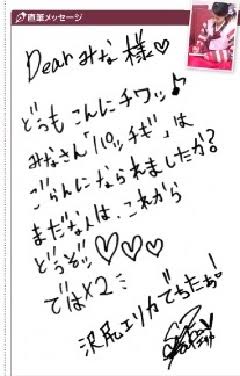 直筆メッセージ
Dear みな様♡
どうも こんにチワッ♪
みなさん「パッチギ」は
ごらんになられましたか?
まだな人は、これから
どうぞッ♡♡♡
では×2ミ
沢尻エリカでちたっ!